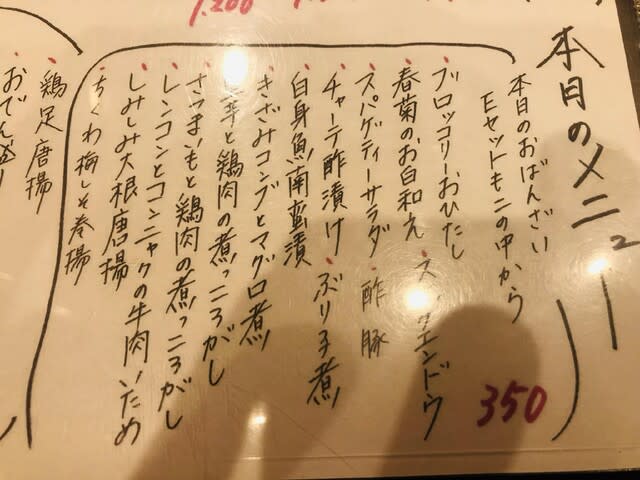 本日のメニュー
2
本日のおばんざい
Eセットもこの中から
350
・ブロッコリーおひたし
・春菊のお白和え ・スナックエンドウ
・スパゲティーサラダ ・酢豚
・チャーテ酢漬け ・ぶり子煮
・白身魚南蛮漬
・きざみコンブとマグロ煮
芋と鶏肉の煮っころがし
・さつまいもと鶏肉の煮っころがし
・レンコンとコンニャクの牛肉いため
・しみしみ大根唐揚
・ちくわ梅しそ巻揚
・鶏足唐揚
おでん盛
1,200